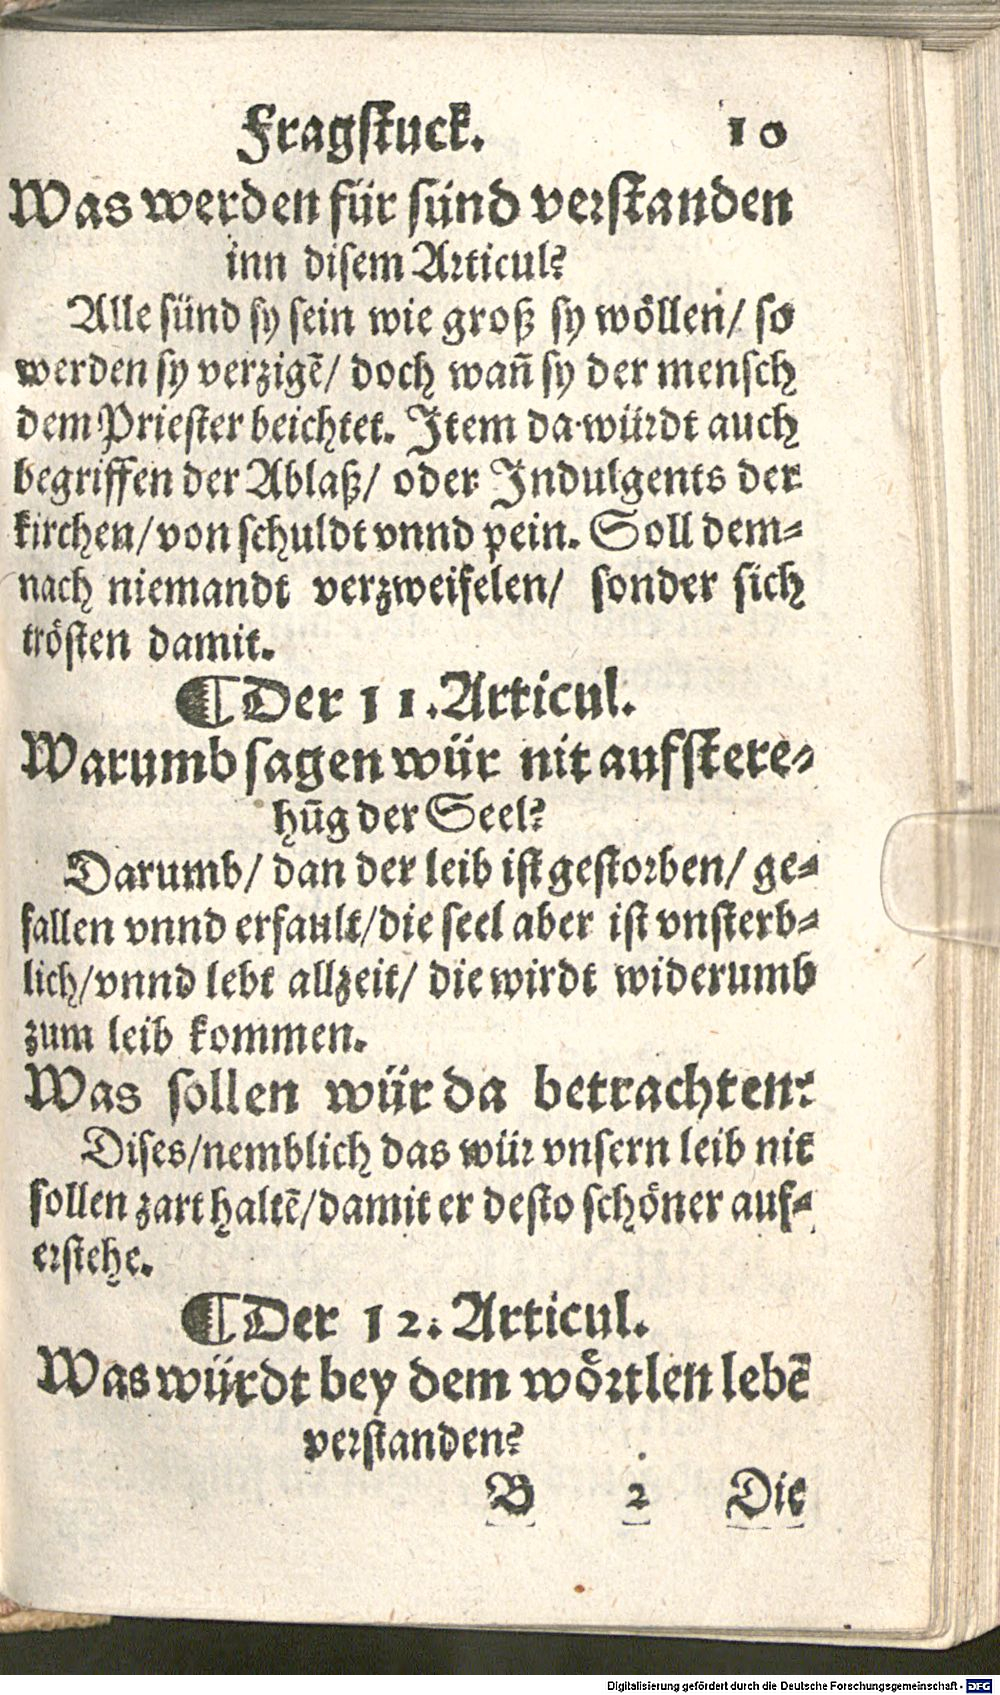 Fragstuck. 10
Was werden für sünd verstanden
inn disem Articul?
Alle sünd sy sein wie groß sy wöllen/ so
werden sy verzigē/ doch wañ sy der mensch
dem Priester beichtet. Item da würdt auch
begriffen der Ablaß/ oder Indulgents der
kirchen/ von schuldt vnnd pein. Soll dem⸗
nach niemandt verzweifelen/ sonder sich
trösten damit.
¶ Der 11. Articul.
Warumb sagen wür nit aufstere⸗
hūg der Seel?
Darumb/ dan der leib ist gestorben/ ge⸗
fallen vnnd erfault/ die seel aber ist vnsterb⸗
lich/ vnnd lebt allzeit/ die wirdt widerumb
zum leib kommen.
Was sollen wür da betrachten?
Dises/ nemblich das wür vnsern leib nit
sollen zart haltē/ damit er desto schöner auf⸗
erstehe.
¶ Der 12. Articul.
Was würdt bey dem wörtlen lebē
verstanden?
B 2 Die
Digitalisierung gefördert durch die Deutsche Forschungsgemeinschaft - DFG